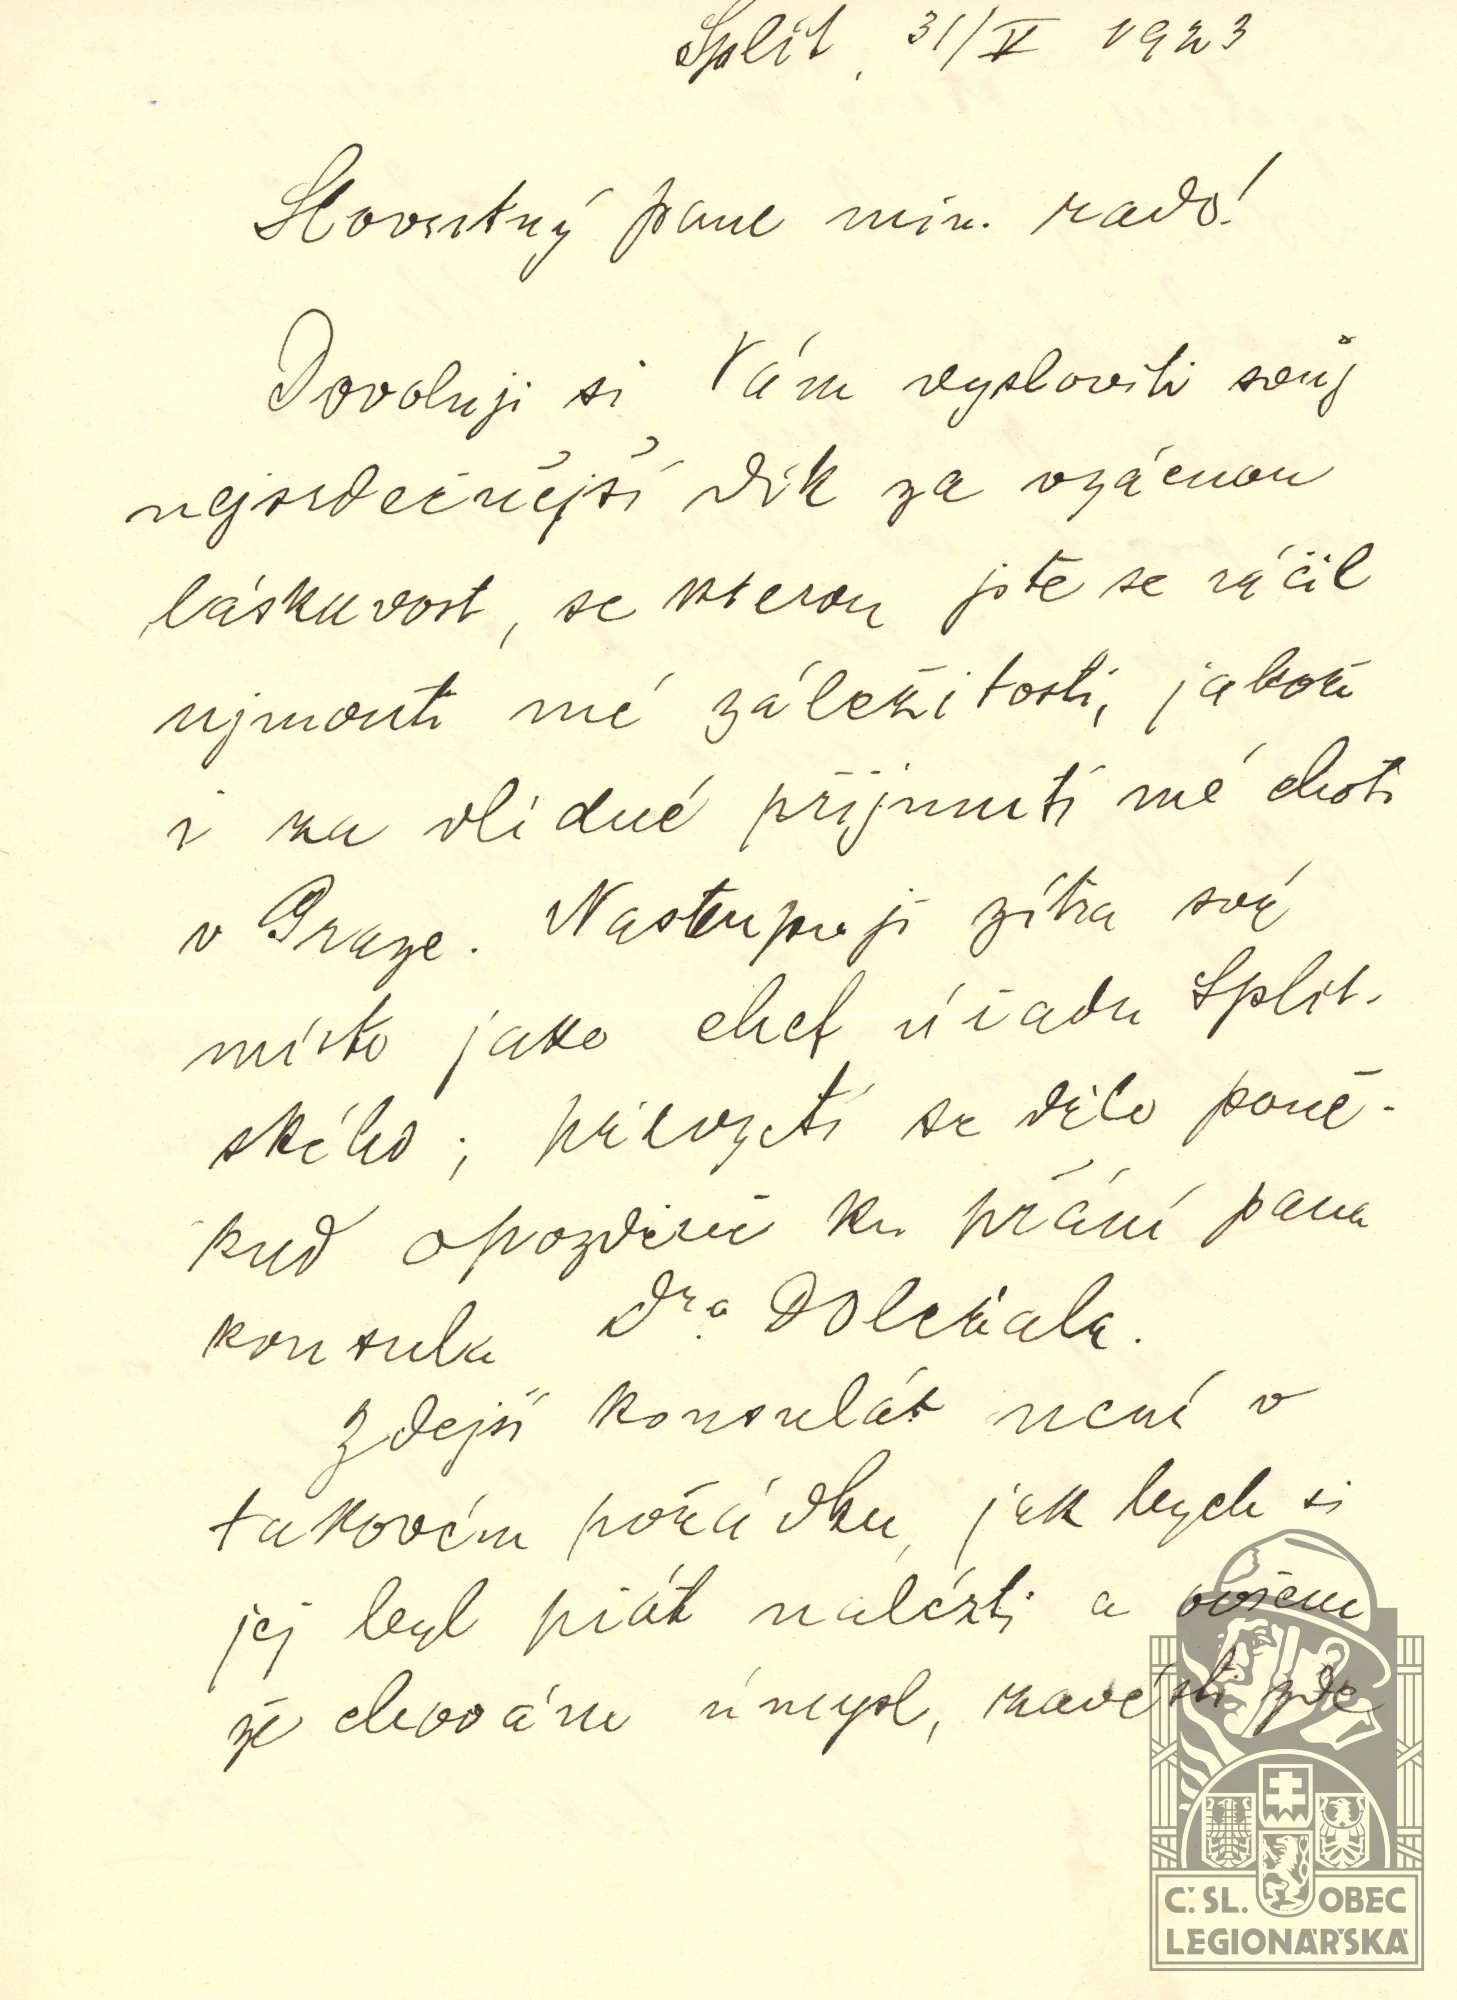 Split, 31/V 1923
Slovutný pane min. rado!
Dovoluji si Vám vysloviti svůj
nejsrdečnější dík za vzácnou
láskavost, se kterou jste se ráčil
ujmouti mé záležitosti, jakož
i za vlídné přijmutí mé choti
v Praze. Nastupuji zítra své
místo jako chef úřadu Split-
ského; převzetí se dělo poně-
kud opozděně ku přání pana
konsula Dra Doležala.
Zdejší konsulát není v
takovém pořádku, jak bych si
jej byl přát nalézti a ovšem
že chovám úmysl, zavésti zde
Č.SL. OBEC
LEGIONÁŘSKÁ